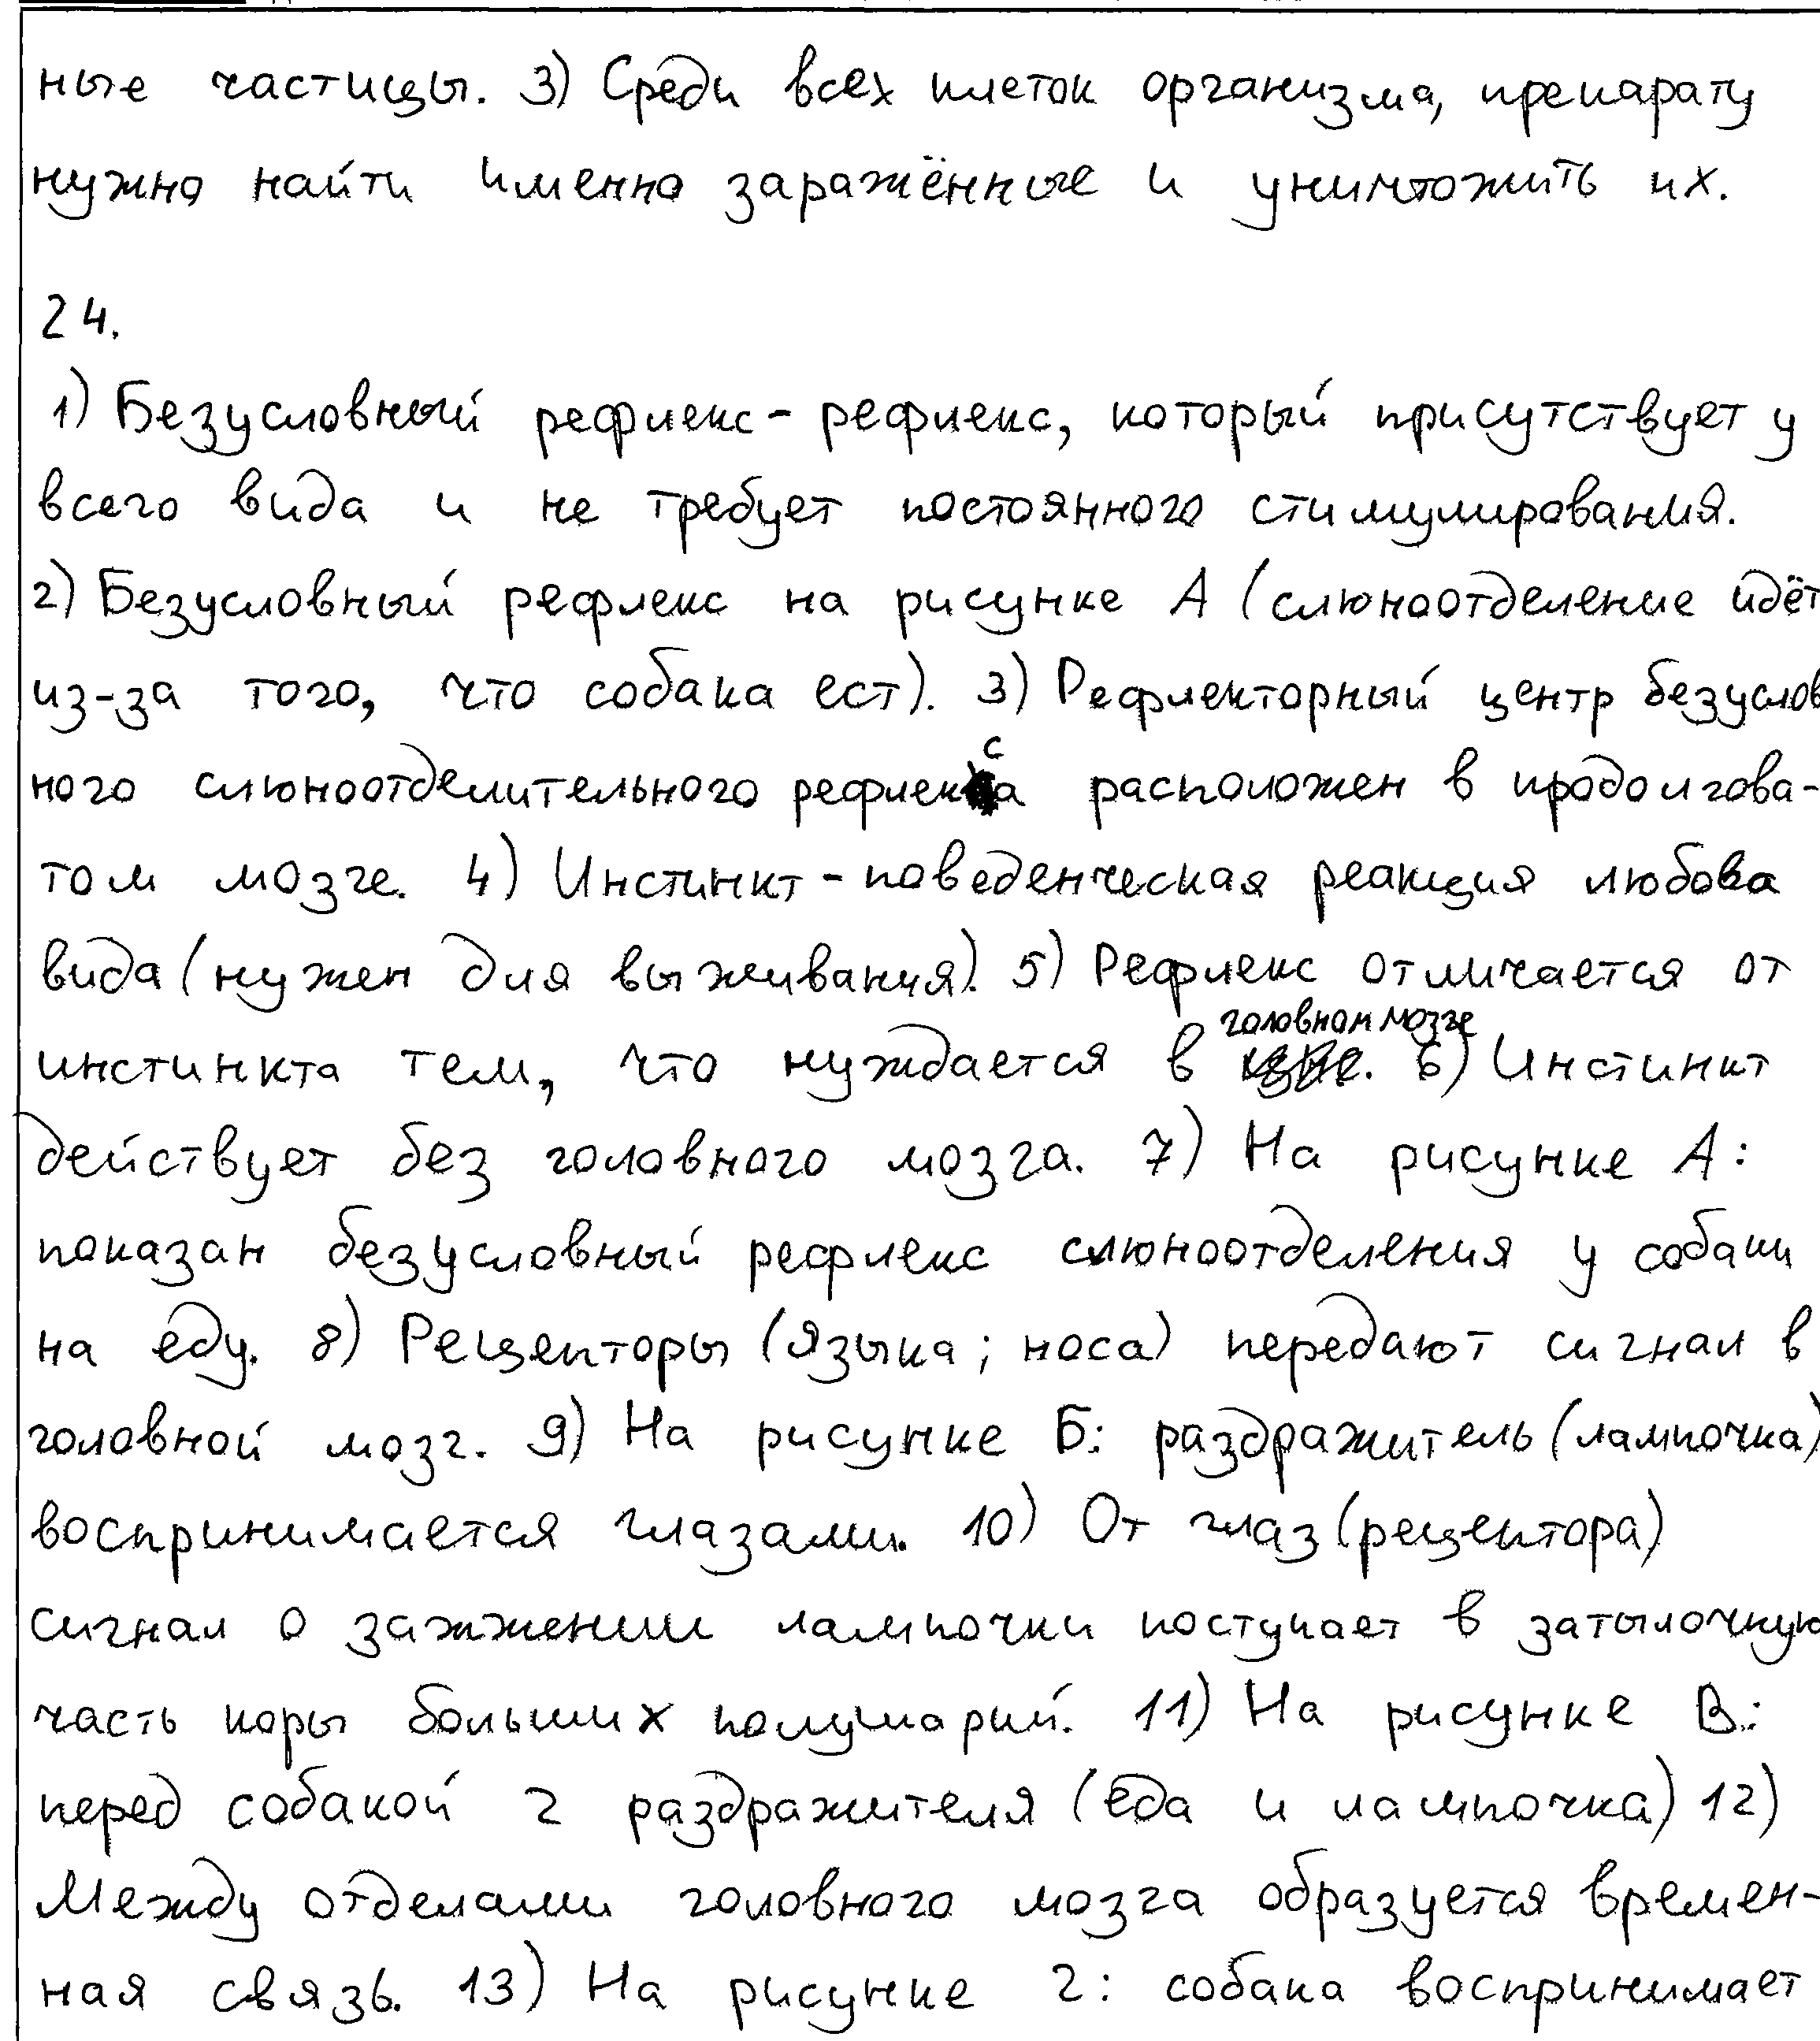 ные частицы. 3) Среди всех клеток организма, препарату
нужно найти именно заражённые и уничтожить их.
24.
1) Безусловный рефлекс - рефлекс, который присутствует у
всего вида и не требует постоянного стимулирования.
2) Безусловный рефлекс на рисунке А (слюноотделение идёт
из-за того, что собака ест). 3) Рефлекторный центр безуслов
ного слюноотделительного рефлекса расположен в продолгова-
том мозге. 4) Инстинкт - поведенческая реакция любова
вида (нужен для выживания). 5) Рефлекс отличается от
инстинкта тем, что нуждается в головном мозге. 6) Инстинкт
действует без головного мозга. 7) На рисунке А:
показан безусловный рефлекс слюноотделения у собаки
на еду. 8) Рецепторы (языка; носа) передают сигнал в
головной мозг. 9) На рисунке Б: раздражитель (лампочка)
воспринимается глазами. 10) От глаз (рецептора)
сигнал о зажжении лампочки поступает в затылочную
часть коры больших полушарий. 11) На рисунке В:
перед собакой 2 раздражителя (еда и лампочка) 12)
Между отделами головного мозга образуется времен-
ная связь. 13) На рисунке 2: собака воспринимает